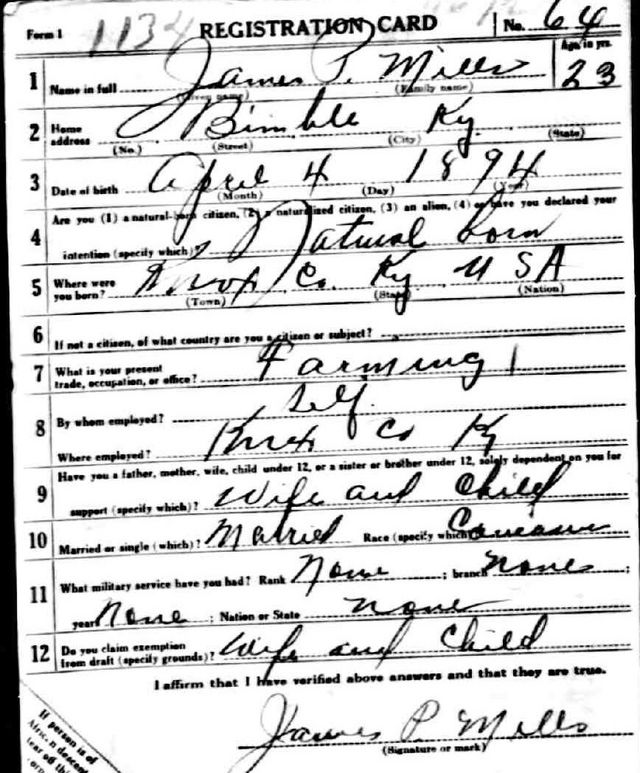 Form 1 1134 REGISTRATION CARD No. 64
1 Name in full James P. Mills Age in yrs. 23
(Given name) (Family name)
2 Home address Bimble Ky.
(No.) (Street) (City) (State)
3 Date of birth April 4 1894
(Month) (Day) (Year)
Are you (1) a natural-born citizen, (2) a naturalized citizen, (3) an alien, (4) or have you declared your
4 intention (specify which)? Natural born
5 Where were you born? Knox Co. Ky USA
(Town) (State) (Nation)
6 If not a citizen, of what country are you a citizen or subject?
7 What is your present trade, occupation, or office? Farming
8 By whom employed? Self
Where employed? Knox Co Ky
Have you a father, mother, wife, child under 12, or a sister or brother under 12, solely dependent on you for
9 support (specify which)? Wife and Child
10 Married or single (which)? Married Race (specify which)
11 What military service have you had? Rank None ; branch None ;
year None ; Nation or State None
12 Do you claim exemption from draft (specify grounds)? Wife and Child
I affirm that I have verified above answers and that they are true.
James P. Mills
(Signature or mark)
If person is of
African descent
tear off this